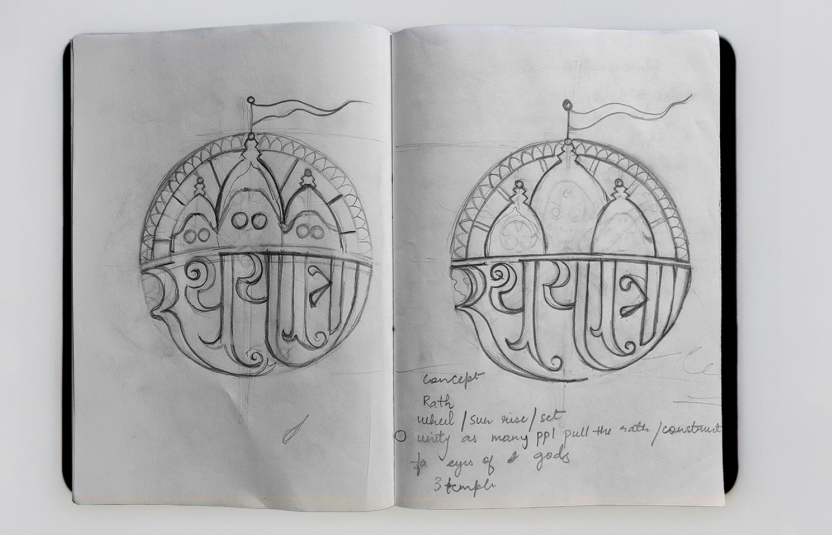 रथयात्रा
रथयात्रा
concept
Rath
wheel / sun rise / set
unity as many ppl pull the rath / construct
eyes of gods
3 temple